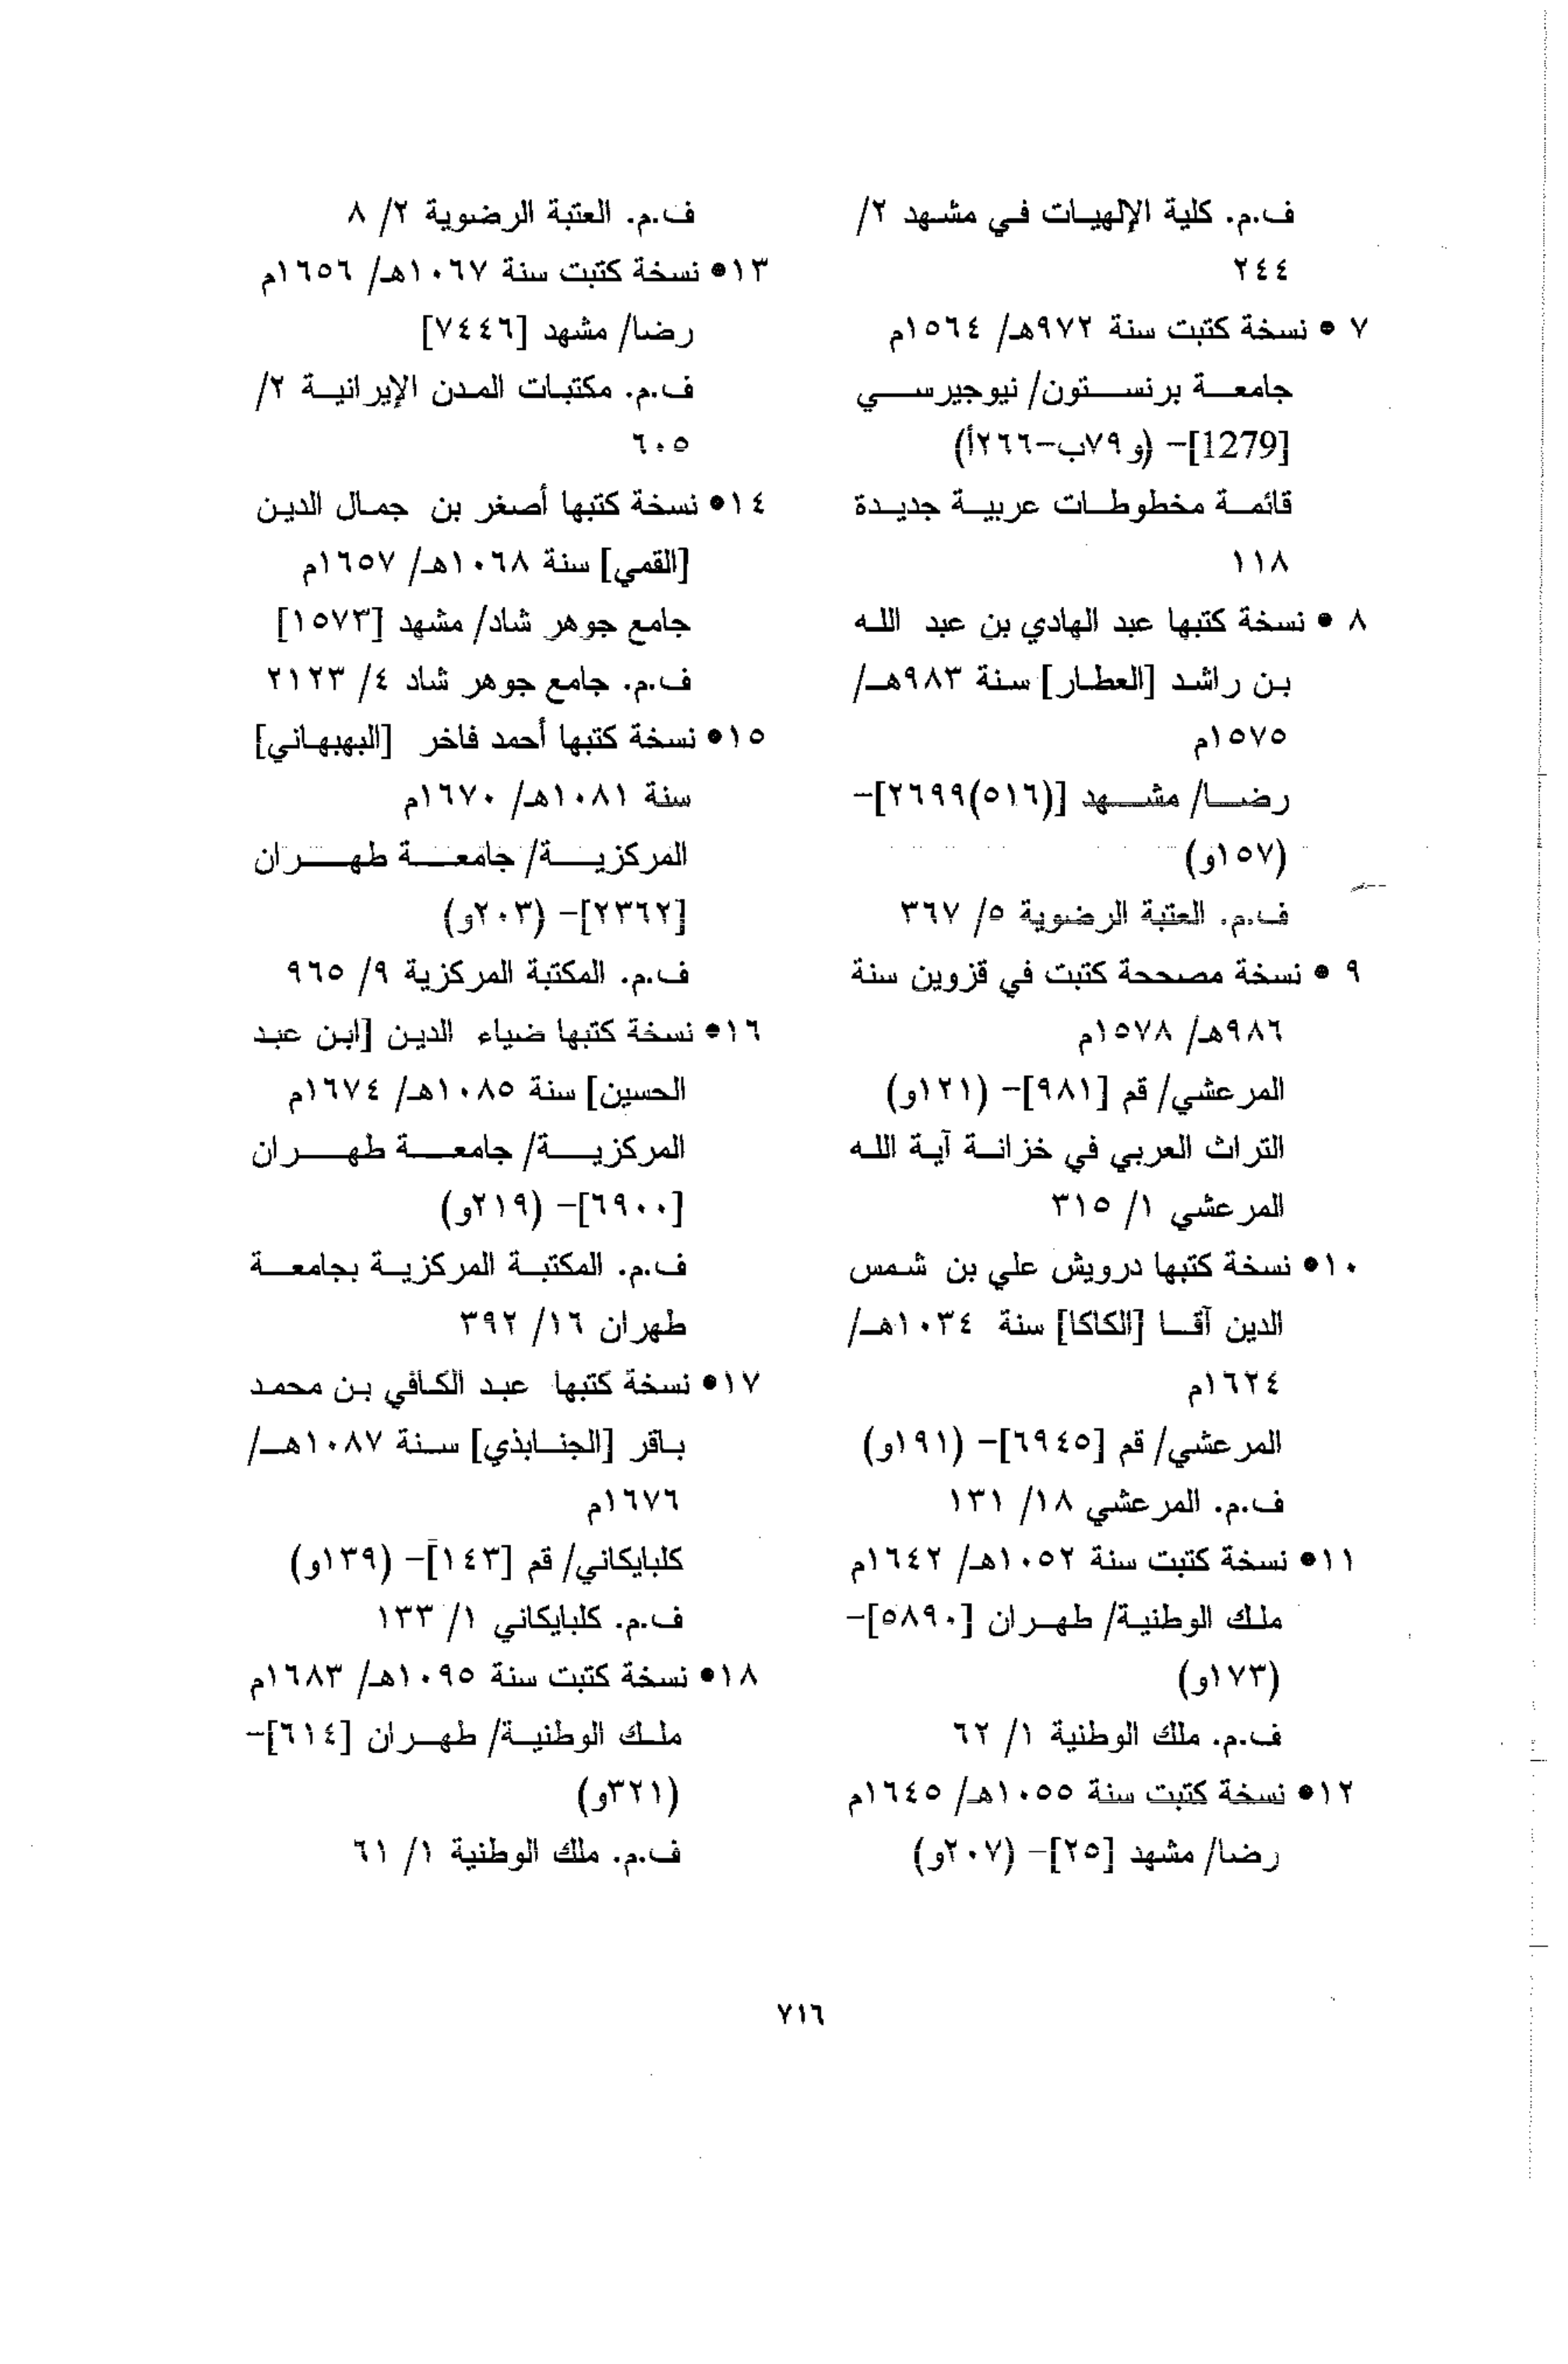 ف.م. كلية الإلهيات في مشهد ٢/
٢٤٤
٧ • نسخة كتبت سنة ٩٧٢هـ/ ١٥٦٤م
جامعة برنستون/ نيوجيرسي
[1279]- (و٧٩ب-٢٦٦أ)
قائمة مخطوطات عربية جديدة
١١٨
٨ • نسخة كتبها عبد الهادي بن عبد الله
بن راشد [العطار] سنة ٩٨٣هـ/
١٥٧٥م
رضا/ مشهد [(٥١٦)٢٦٩٩]-
(١٥٧و)
ف.م. العتبة الرضوية ٥/ ٣٦٧
٩ • نسخة مصححة كتبت في قزوين سنة
٩٨٦هـ/ ١٥٧٨م
المرعشي/ قم [٩٨١]- (١٢١و)
التراث العربي في خزانة آية الله
المرعشي ١/ ٣١٥
١٠• نسخة كتبها درويش علي بن شمس
الدين آقا [الكاكا] سنة ١٠٣٤هـ/
١٦٢٤م
المرعشي/ قم [٦٩٤٥]- (١٩١و)
ف.م. المرعشي ١٨/ ١٣١
١١• نسخة كتبت سنة ١٠٥٢هـ/ ١٦٤٢م
ملك الوطنية/ طهران [٥٨٩٠]-
(١٧٣و)
ف.م. ملك الوطنية ١/ ٦٢
١٢• نسخة كتبت سنة ١٠٥٥هـ/ ١٦٤٥م
رضا/ مشهد [٢٥]- (٢٠٧و)
ف.م. العتبة الرضوية ٢/ ٨
١٣• نسخة كتبت سنة ١٠٦٧هـ/ ١٦٥٦م
رضا/ مشهد [٧٤٤٦]
ف.م. مكتبات المدن الإيرانية ٢/
٦٠٥
١٤• نسخة كتبها أصغر بن جمال الدين
[القمي] سنة ١٠٦٨هـ/ ١٦٥٧م
جامع جوهر شاد/ مشهد [١٥٧٣]
ف.م. جامع جوهر شاد ٤/ ٢١٢٣
١٥• نسخة كتبها أحمد فاخر [البهبهاني]
سنة ١٠٨١هـ/ ١٦٧٠م
المركزية/ جامعة طهران
[٢٣٦٢]- (٢٠٣و)
ف.م. المكتبة المركزية ٩/ ٩٦٥
١٦• نسخة كتبها ضياء الدين [ابن عبد
الحسين] سنة ١٠٨٥هـ/ ١٦٧٤م
المركزية/ جامعة طهران
[٦٩٠٠]- (٢١٩و)
ف.م. المكتبة المركزية بجامعة
طهران ١٦/ ٣٩٢
١٧• نسخة كتبها عبد الكافي بن محمد
باقر [الجنابذي] سنة ١٠٨٧هـ/
١٦٧٦م
كلبايكاني/ قم [١٤٣]- (١٣٩و)
ف.م. كلبايكاني ١/ ١٣٣
١٨• نسخة كتبت سنة ١٠٩٥هـ/ ١٦٨٣م
ملك الوطنية/ طهران [٦١٤]-
(٣٢١و)
ف.م. ملك الوطنية ١/ ٦١
٧١٦